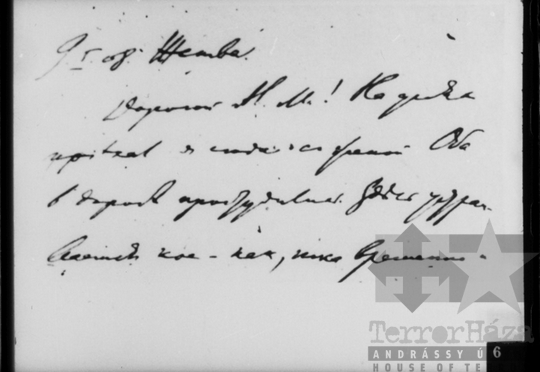 9. I. 08. Женева.
Дорогой А. М.! На днях
приѣхал я сюда с женой. Оба
в дорогѣ простудились. Здѣсь устраи-
ваемся кое-как, пока временно -
TerrorHáza
ANDRÁSSY Ú
HOUSE OF TE
6